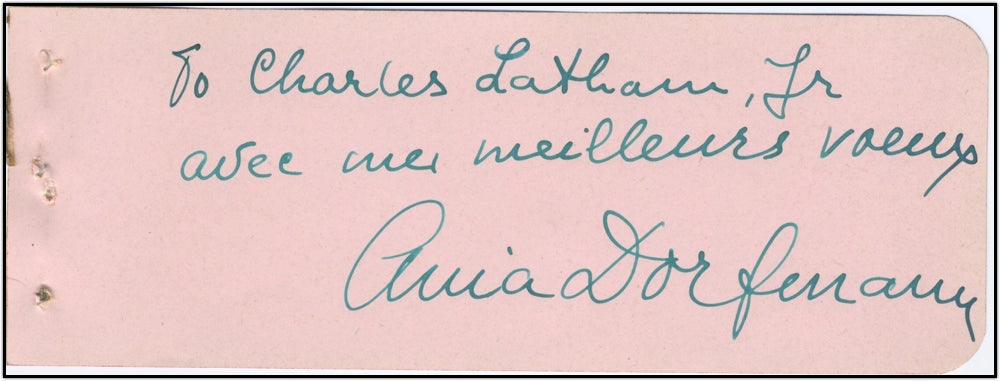 To Charles Latham, Jr
avec mes meilleurs voeux
Ania Dorfmann